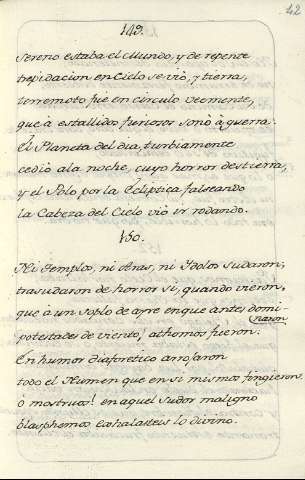 42
149.
Sereno estaba el Mundo, y de repente
trepidacion en Cielo se vio, y tierra,
terremoto fue en circulo vecmente,
que à estallidos furiosos sonò à guerra.
El Planeta del dia turbiamente
cediò a la noche, cuyo horror destierra,
y el Polo por la Ecliptica falseando
la Cabeza del Cielo viò ir rodando.
150.
Ni templos, ni Aras, ni Idolos sudaron,
trasudaron de horror si, quando vieron,
que à un soplo de ayre en que antes domi
naron
potestades de viento, athomos fueron.
En humor diaforetico arrojaron
todo el Numen que en si mismos fingieron.
ò mostruos! en aquel sudor maligno
blasphemos exhalasteis lo divino.